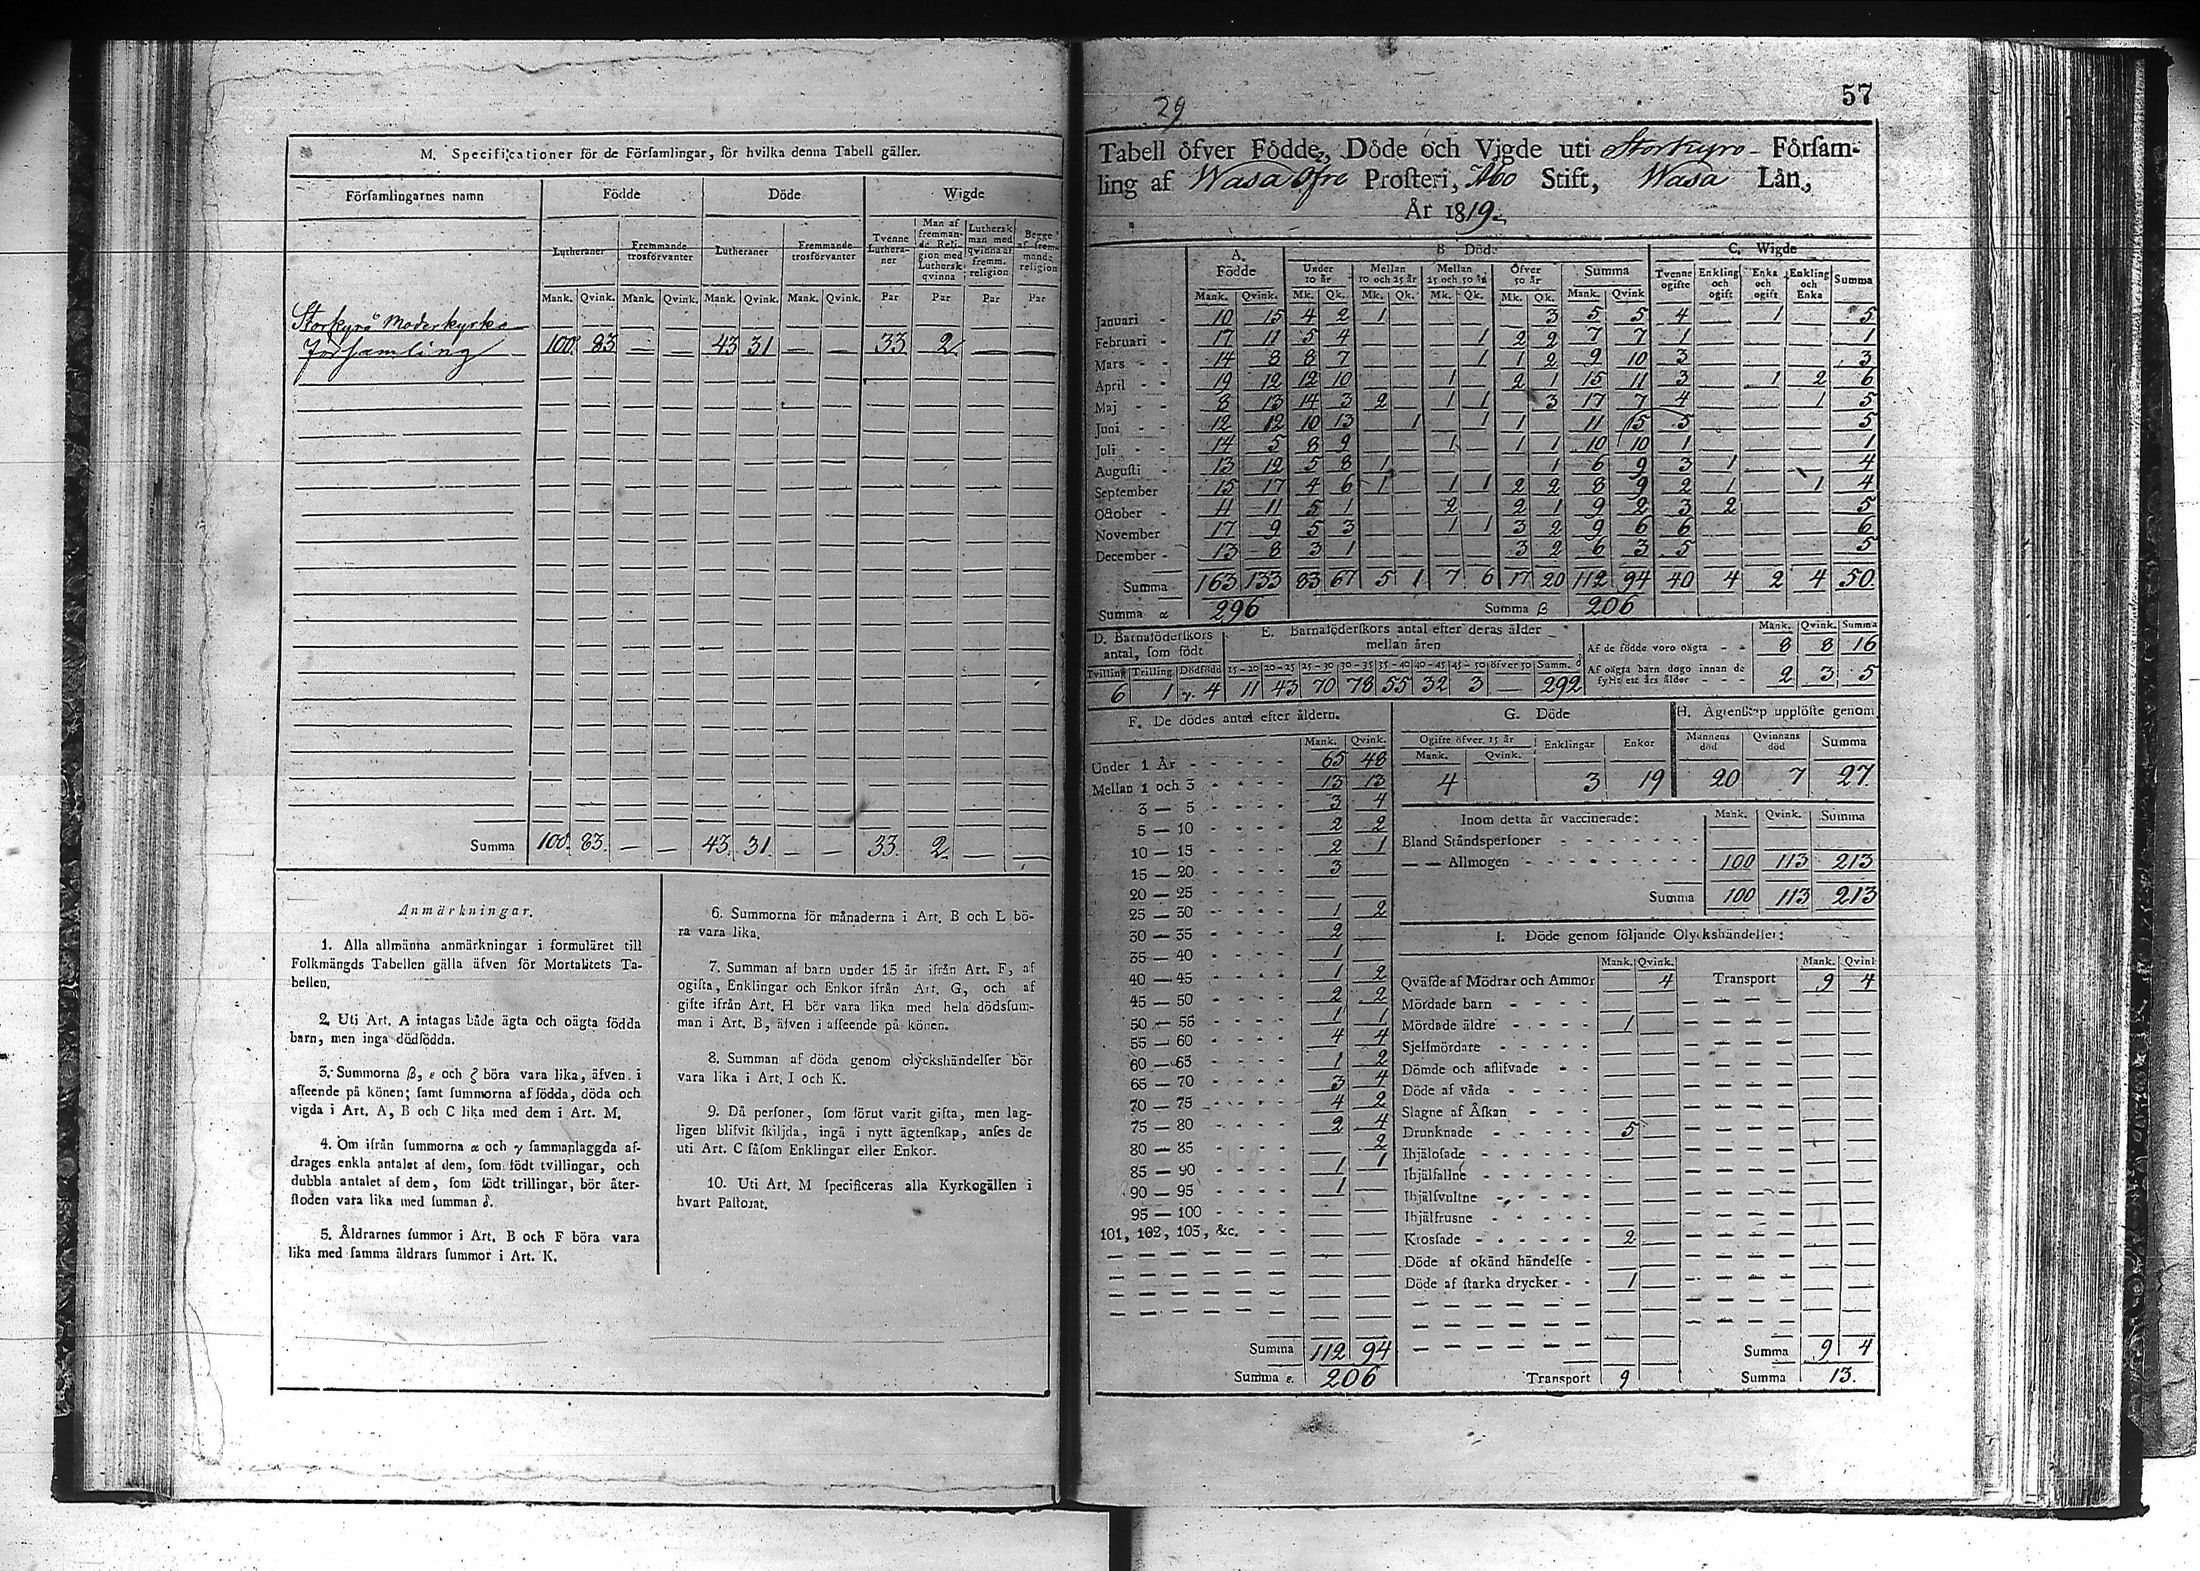 M. Specificationer för de Församlingar, för hvilka denna Tabell gäller.
Församlingarnes namn | Födde | Döde | Wigde
Lutheraner | Fremmande trosförvanter | Lutheraner | Fremmande trosförvanter | Tvenne Lutheraner | Man af fremmande Religion med Luthersk qvinna | Luthersk man med qvinna af fremm. religion | Begge af fremmande religion
Mank. Qvink. Mank. Qvink. Mank. Qvink. Mank. Qvink. Par Par Par Par
Storkyro Moderkyrko
församling 100 83 — — 43 31 — — 33 2 — —
Summa 100 83 — — 43 31 — — 33 2 — —
Anmärkningar.
1. Alla allmänna anmärkningar i formuläret till
Folkmängds Tabellen gälla äfven för Mortalitets Ta-
bellen.
2. Uti Art. A intagas både ägta och oägta födda
barn, men inga dödfödda.
3. Summorna β, ε och ζ böra vara lika, äfven i
afseende på könen; samt summorna af födda, döda och
vigda i Art. A, B och C lika med dem i Art. M.
4. Om ifrån summorna α och γ sammanlaggda af-
drages enkla antalet af dem, som födt tvillingar, och
dubbla antalet af dem, som födt trillingar, bör åter-
stoden vara lika med summan δ.
5. Åldrarnes summor i Art. B och F böra vara
lika med samma åldrars summor i Art. K.
6. Summorna för månaderna i Art. B och L bö-
ra vara lika.
7. Summan af barn under 15 år ifrån Art. F, af
ogifta, Enklingar och Enkor ifrån Art. G, och af
gifte ifrån Art. H bör vara lika med hela dödssum-
man i Art. B, äfven i afseende på könen.
8. Summan af döda genom olyckshändelser bör
vara lika i Art. I och K.
9. Då personer, som förut varit gifta, men lag-
ligen blifvit skiljda, ingå i nytt ägtenskap, anses de
uti Art. C såsom Enklingar eller Enkor.
10. Uti Art. M specificeras alla Kyrkogällen i
hvart Pastorat.
29
57
Tabell öfver Födde, Döde och Vigde uti Storkyro Försam-
ling af Wasa Öfre Prosteri, Åbo Stift, Wasa Län,
År 1819.
A. Födde | B Döde | C. Wigde
Under 10 år | Mellan 10 och 25 år | Mellan 25 och 50 år | Öfver 50 år | Summa | Tvenne ogifte | Enkling och ogift | Enka och ogift | Enkling och Enka | Summa
Mank. Qvink. Mk. Qk. Mk. Qk. Mk. Qk. Mk. Qk. Mank. Qvink
Januari - 10 15 4 2 1 — — — — 3 5 5 4 — 1 — 5
Februari - 17 11 5 4 — — — 1 2 2 7 7 1 — — — 1
Mars - - 14 8 8 7 — — — 1 1 2 9 10 3 — — — 3
April - - 19 12 12 10 — — 1 — 2 1 15 11 3 — 1 2 6
Maj - - 8 13 14 3 2 — 1 1 — 3 17 7 4 — — 1 5
Juni - - 12 12 10 13 — 1 — 1 1 — 11 15 5 — — — 5
Juli - - 14 5 8 9 — — 1 — 1 1 10 10 1 — — — 1
Augusti - 13 12 5 8 1 — — — — 1 6 9 3 1 — — 4
September 15 17 4 6 1 — 1 1 2 2 8 9 2 1 — 1 4
October - 11 11 5 1 — — 2 — 2 1 9 2 3 2 — — 5
November 17 9 5 3 — — 1 1 3 2 9 6 6 — — — 6
December - 13 8 3 1 — — — — 3 2 6 3 5 — — — 5
Summa 163 133 83 67 5 1 7 6 17 20 112 94 40 4 2 4 50
Summa α 296 Summa β 206
D. Barnaföderskors antal, som födt
Tvilling Trilling Dödfödd
6 1 γ. 4
E. Barnaföderskors antal efter deras ålder mellan åren
15-20 20-25 25-30 30-35 35-40 40-45 45-50 öfver 50 Summ. δ
11 43 70 78 55 32 3 — 292
Mank. Qvink. Summa
Af de födde voro oägta - - 8 8 16
Af oägta barn dogo innan de fyllt ett års ålder - - - 2 3 5
F. De dödes antal efter åldern.
Mank. Qvink.
Under 1 År - - - - - 65 48
Mellan 1 och 3 - - - - 13 13
3 — 5 - - - - 3 4
5 — 10 - - - - 2 2
10 — 15 - - - - 2 1
15 — 20 - - - - 3 —
20 — 25 - - - - — —
25 — 30 - - - - 1 2
30 — 35 - - - - 2 —
35 — 40 - - - - 1 —
40 — 45 - - - - 1 2
45 — 50 - - - - 2 2
50 — 55 - - - - 1 1
55 — 60 - - - - 4 4
60 — 65 - - - - 1 2
65 — 70 - - - - 3 4
70 — 75 - - - - 4 2
75 — 80 - - - - 2 4
80 — 85 - - - - — 2
85 — 90 - - - - 1 1
90 — 95 - - - - 1 —
95 — 100 - - - - — —
101, 102, 103, &c. - - — —
Summa 112 94
Summa ε. 206
G. Döde
Ogifte öfver 15 år | Enklingar | Enkor
Mank. Qvink.
4 3 19
H. Ägtenskap upplöste genom
Mannens död | Qvinnans död | Summa
20 7 27
Inom detta år vaccinerade: Mank. Qvink. Summa
Bland Ståndspersoner - - - — — —
— — Allmogen - - - 100 113 213
Summa 100 113 213
I. Döde genom följande Olyckshändelser:
Mank. Qvink. Mank. Qvink
Qväfde af Mödrar och Ammor — 4 Transport 9 4
Mördade barn - - - -
Mördade äldre - - - - 1
Sjelfmördare - - - - -
Dömde och aflifvade - -
Döde af våda - - - -
Slagne af Åskan - - -
Drunknade - - - - - 5
Ihjälosade - - - - - -
Ihjälfallne - - - - -
Ihjälsvultne - - - - -
Ihjälfrusne - - - - -
Krossade - - - - - - 2
Döde af okänd händelse -
Döde af starka drycker - - 1
Summa 9 4
Transport 9 Summa 13.